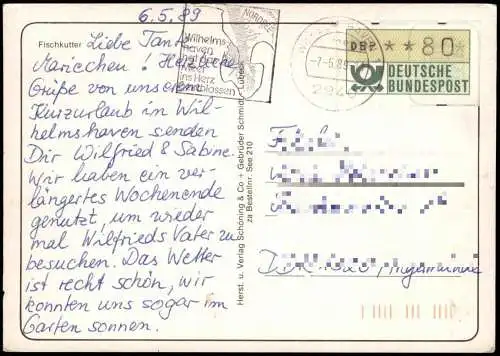 6.5.89
Fischkutter
Liebe Tante
Mariechen! Herzliche
Grüße von unserem
Kurzurlaub in Wil-
helmshaven senden
Dir Wilfried & Sabine.
Wir haben ein ver-
längertes Wochenende
genutzt, um wieder
mal Wilfrieds Vater zu
besuchen. Das Wetter
ist recht schön, wir
konnten uns sogar im
Garten sonnen.
Herst. u. Verlag Schöning & Co + Gebrüder Schmidt, Lübeck
zu Bestellnr. See 210
NORDSEE
Wilhelms-
haven
ins Herz
-7.5.89
DBP **80
DEUTSCHE
BUNDESPOST